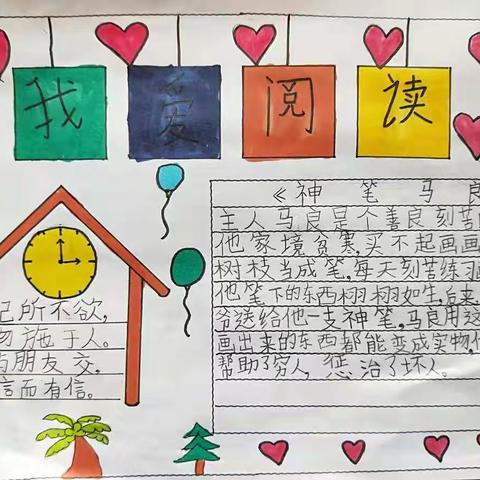 我爱阅读
《神笔马良
主人马良是个善良刻苦
他家境贫寒,买不起画画
树枝当成笔,每天刻苦练习
他笔下的东西栩栩如生,后来,
爷送给他一支神笔,马良用这
画出来的东西都能变成实物,他
帮助了穷人,惩治了坏人。
己所不欲,
勿施于人。
与朋友交,
言而有信。